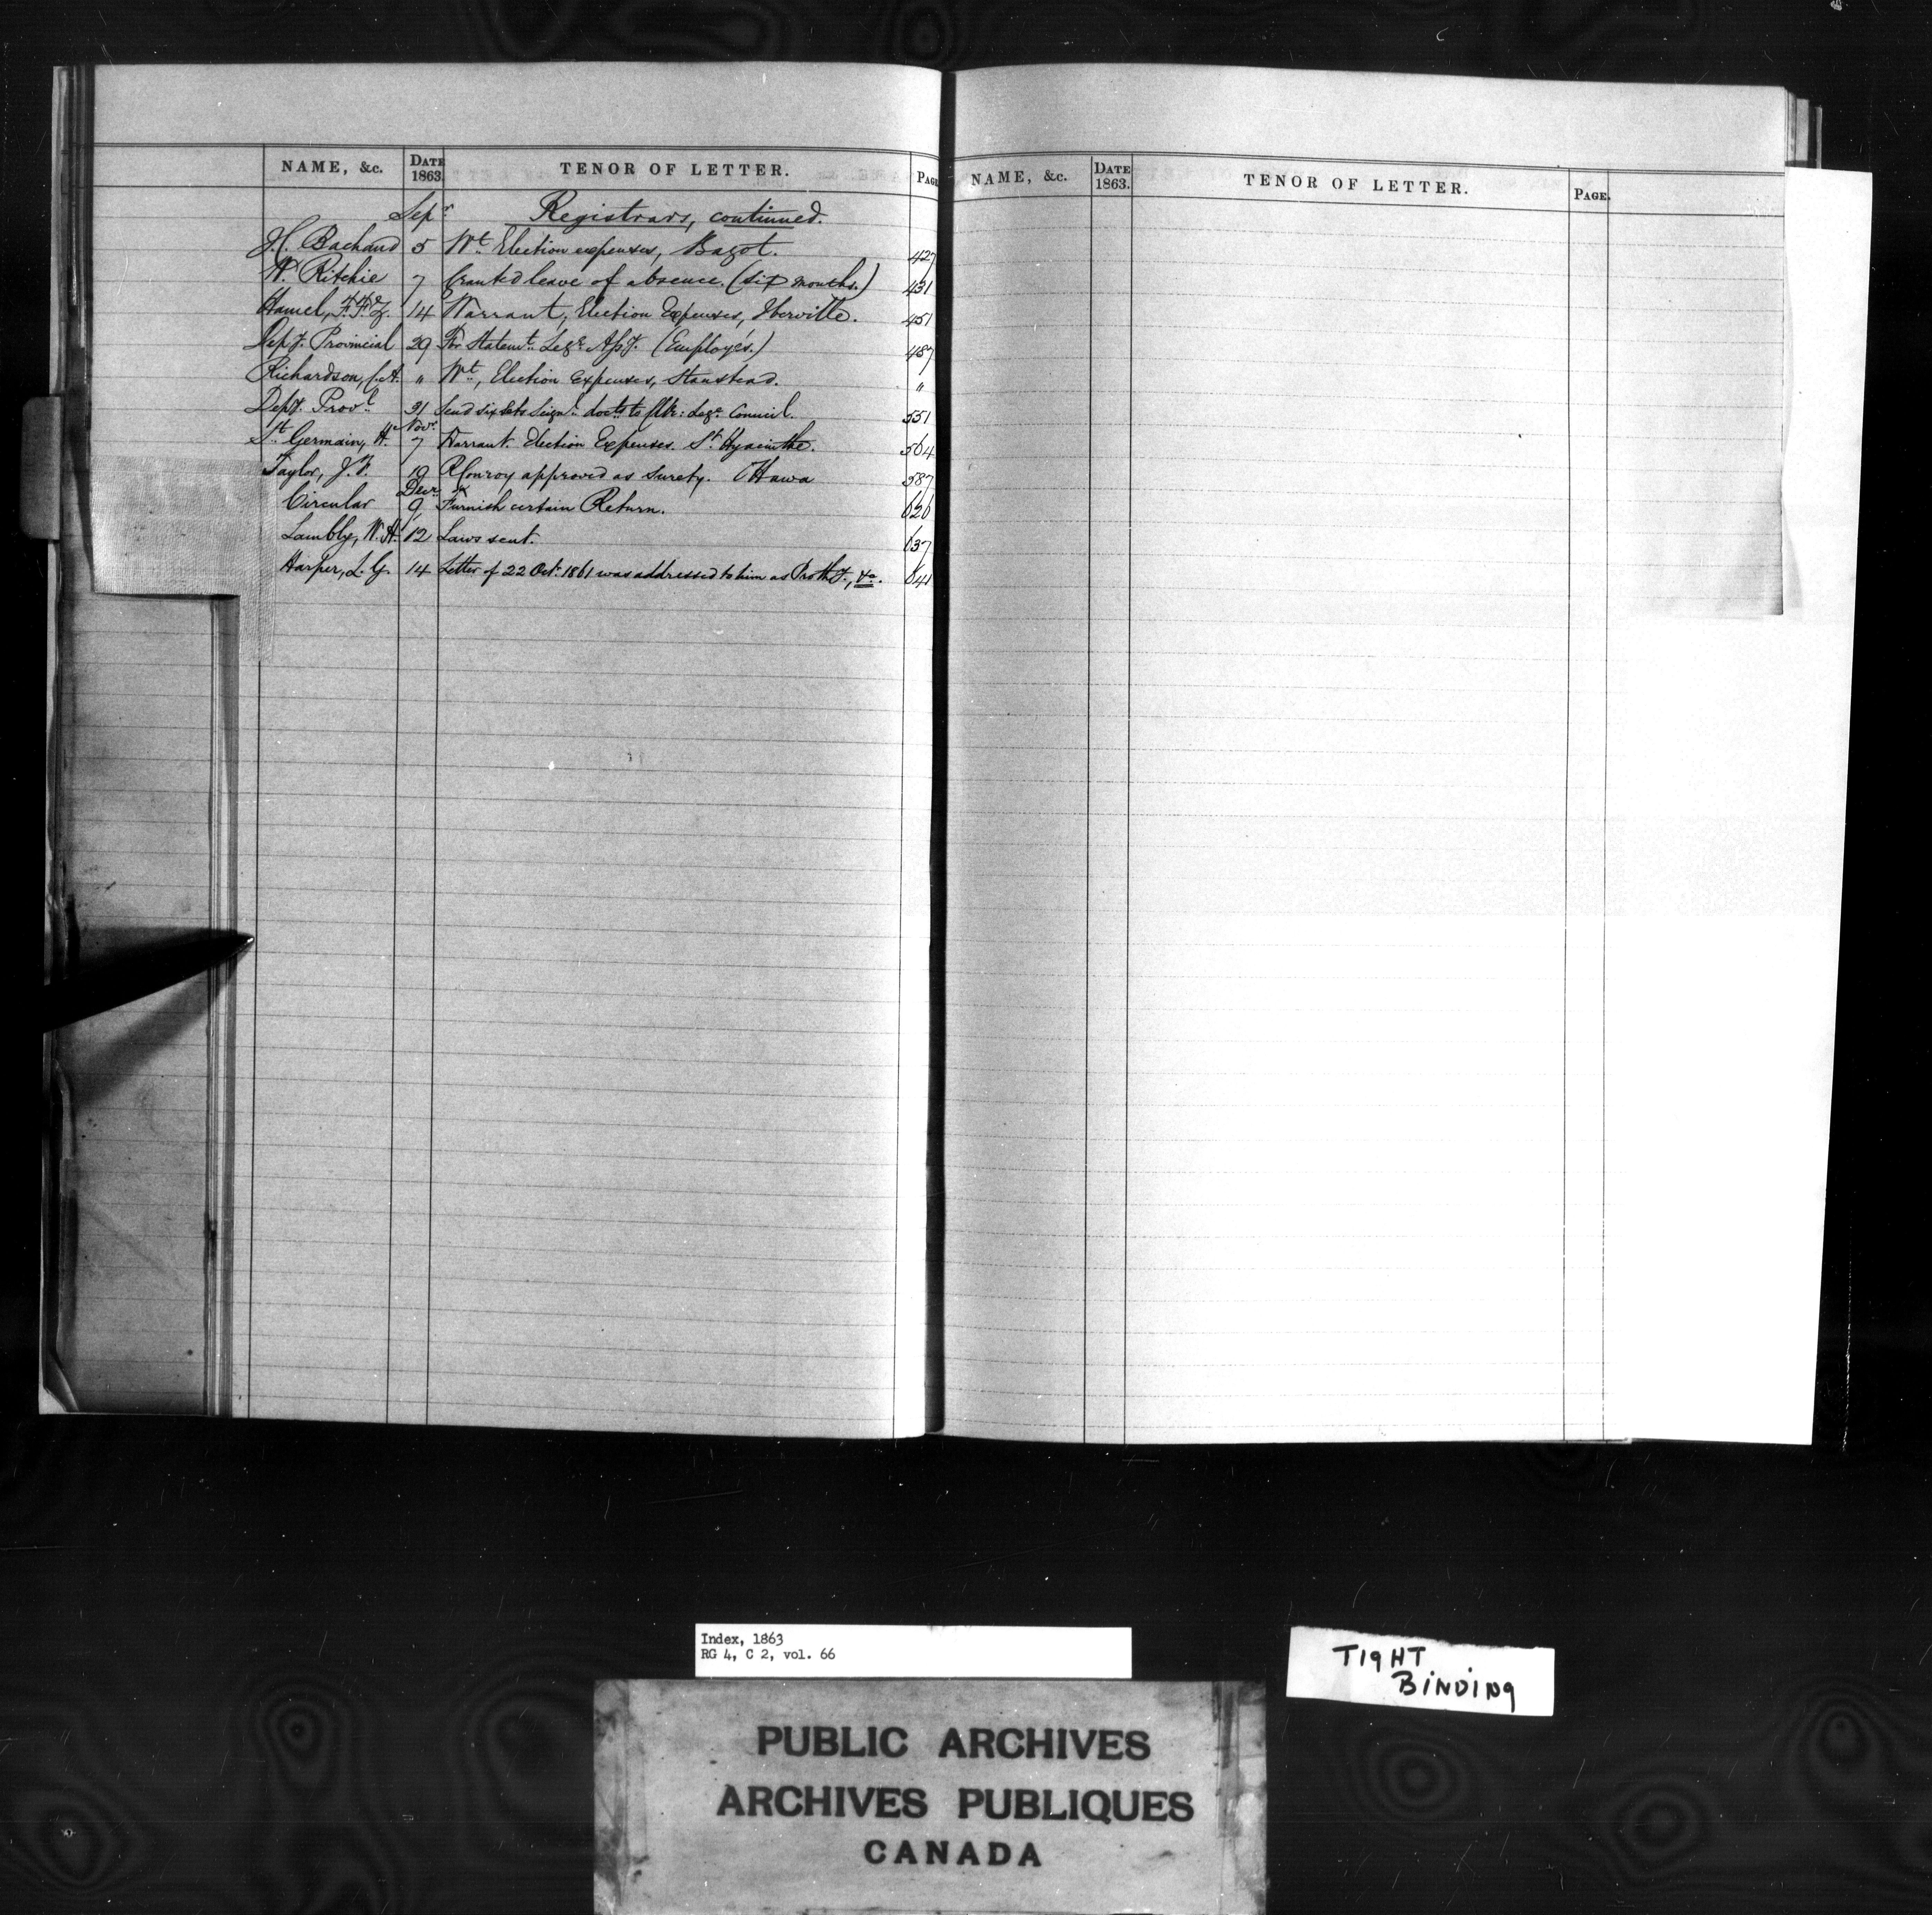 NAME, &c. DATE 1863. TENOR OF LETTER. PAGE
Sepr Registrars, continued.
J.C. Bachand 5 Wt. Election expenses, Bagot. 427
W. Ritchie 7 Granted leave of absence. (Six months.) 431
Hamel, F.F.Z. 14 Warrant, Election Expenses, Iberville. 451
Depy. Provincial 29 For Statemt. Lege. Assy. (Employés.) 487
Richardson, C.A. " Wt, Election Expenses, Stanstead. "
Depy. Provl. 31 Send six sets Seignl. docts to Clk: Lege. Council. 551
Novr.
St. Germain, H. 7 Warrant. Election Expenses. St. Hyacinthe. 564
Taylor, J.F. 19 R Conroy approved as surety. Ottawa 587
Decr.
Circular 9 Furnish certain Return. 626
Lambly, W.H. 12 Laws sent. 637
Harper, L.G. 14 Letter of 22 Oct. 1861 was addressed to him as Prothy., &c. 641
NAME, &c. DATE 1863. TENOR OF LETTER. PAGE.
Index, 1863
RG 4, C 2, vol. 66
TIGHT
BINDING
PUBLIC ARCHIVES
ARCHIVES PUBLIQUES
CANADA